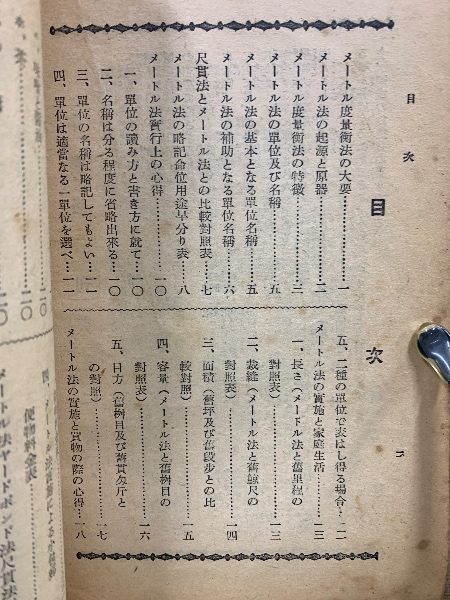 目次
目次
一
メートル度量衡法の大要…………一
メートル法の起源と原器…………二
メートル度量衡法の特徴…………三
メートル法の單位及び名稱…………五
メートル法の基本となる單位名稱……五
メートル法の補助となる單位名稱……六
尺貫法とメートル法との比較對照表……七
メートル法の略記命位用途早分り表…八
メートル法實行上の心得…………一〇
一、單位の讀み方と書き方に就て…一〇
二、名稱は分る程度に省略出來る…一〇
三、單位の名稱は略記してもよい…一一
四、單位は適當なる一單位を選べ…一一
五、二種の單位で表はし得る場合…一二
メートル法の實施と家庭生活…………一三
一、長さ（メートル法と舊里程の
對照表）…………一三
二、裁縫（メートル法と舊鯨尺の
對照表）…………一四
三、面積（舊坪及び舊段歩との比
較對照）…………一五
四、容量（メートル法と舊桝目の
對照表）…………一六
五、目方（舊樹目及び舊貫匁斤と
の對照）…………一七
メートル法の實施と買物の際の心得…一八
便物料金表
メートル法ヤードポンド法尺貫法